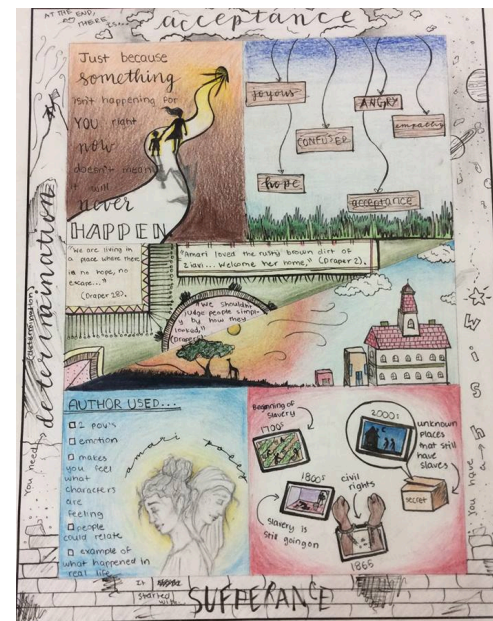 AT THE END,
THERE IS...
acceptance
Just because
something
isn't happening for
YOU right
now
doesn't mean
it will
never
HAPPEN.
joyous
ANGRY
CONFUSED
empathy
hope
acceptance
"We are living in
a place where there
is no hope, no
escape..."
(Draper 28).
"Amari loved the rusty brown dirt of
Ziavi... Welcome her home," (Draper 2).
"We shouldn't
judge people simply
by how they
looked,"
(Draper
AUTHOR USED...
2 POV's
emotion
makes
you feel
what
characters
are
feeling
people
could relate
example of
what happened in
real life
amari
polly
Beginning of
slavery
1700s
1800s
slavery is
still going on
civil
rights
1865
2000s
unknown
places
that still
have
slaves
secret
you need
(determination)
determination
you have
a
wish
It
started
with...
SUFFERANCE